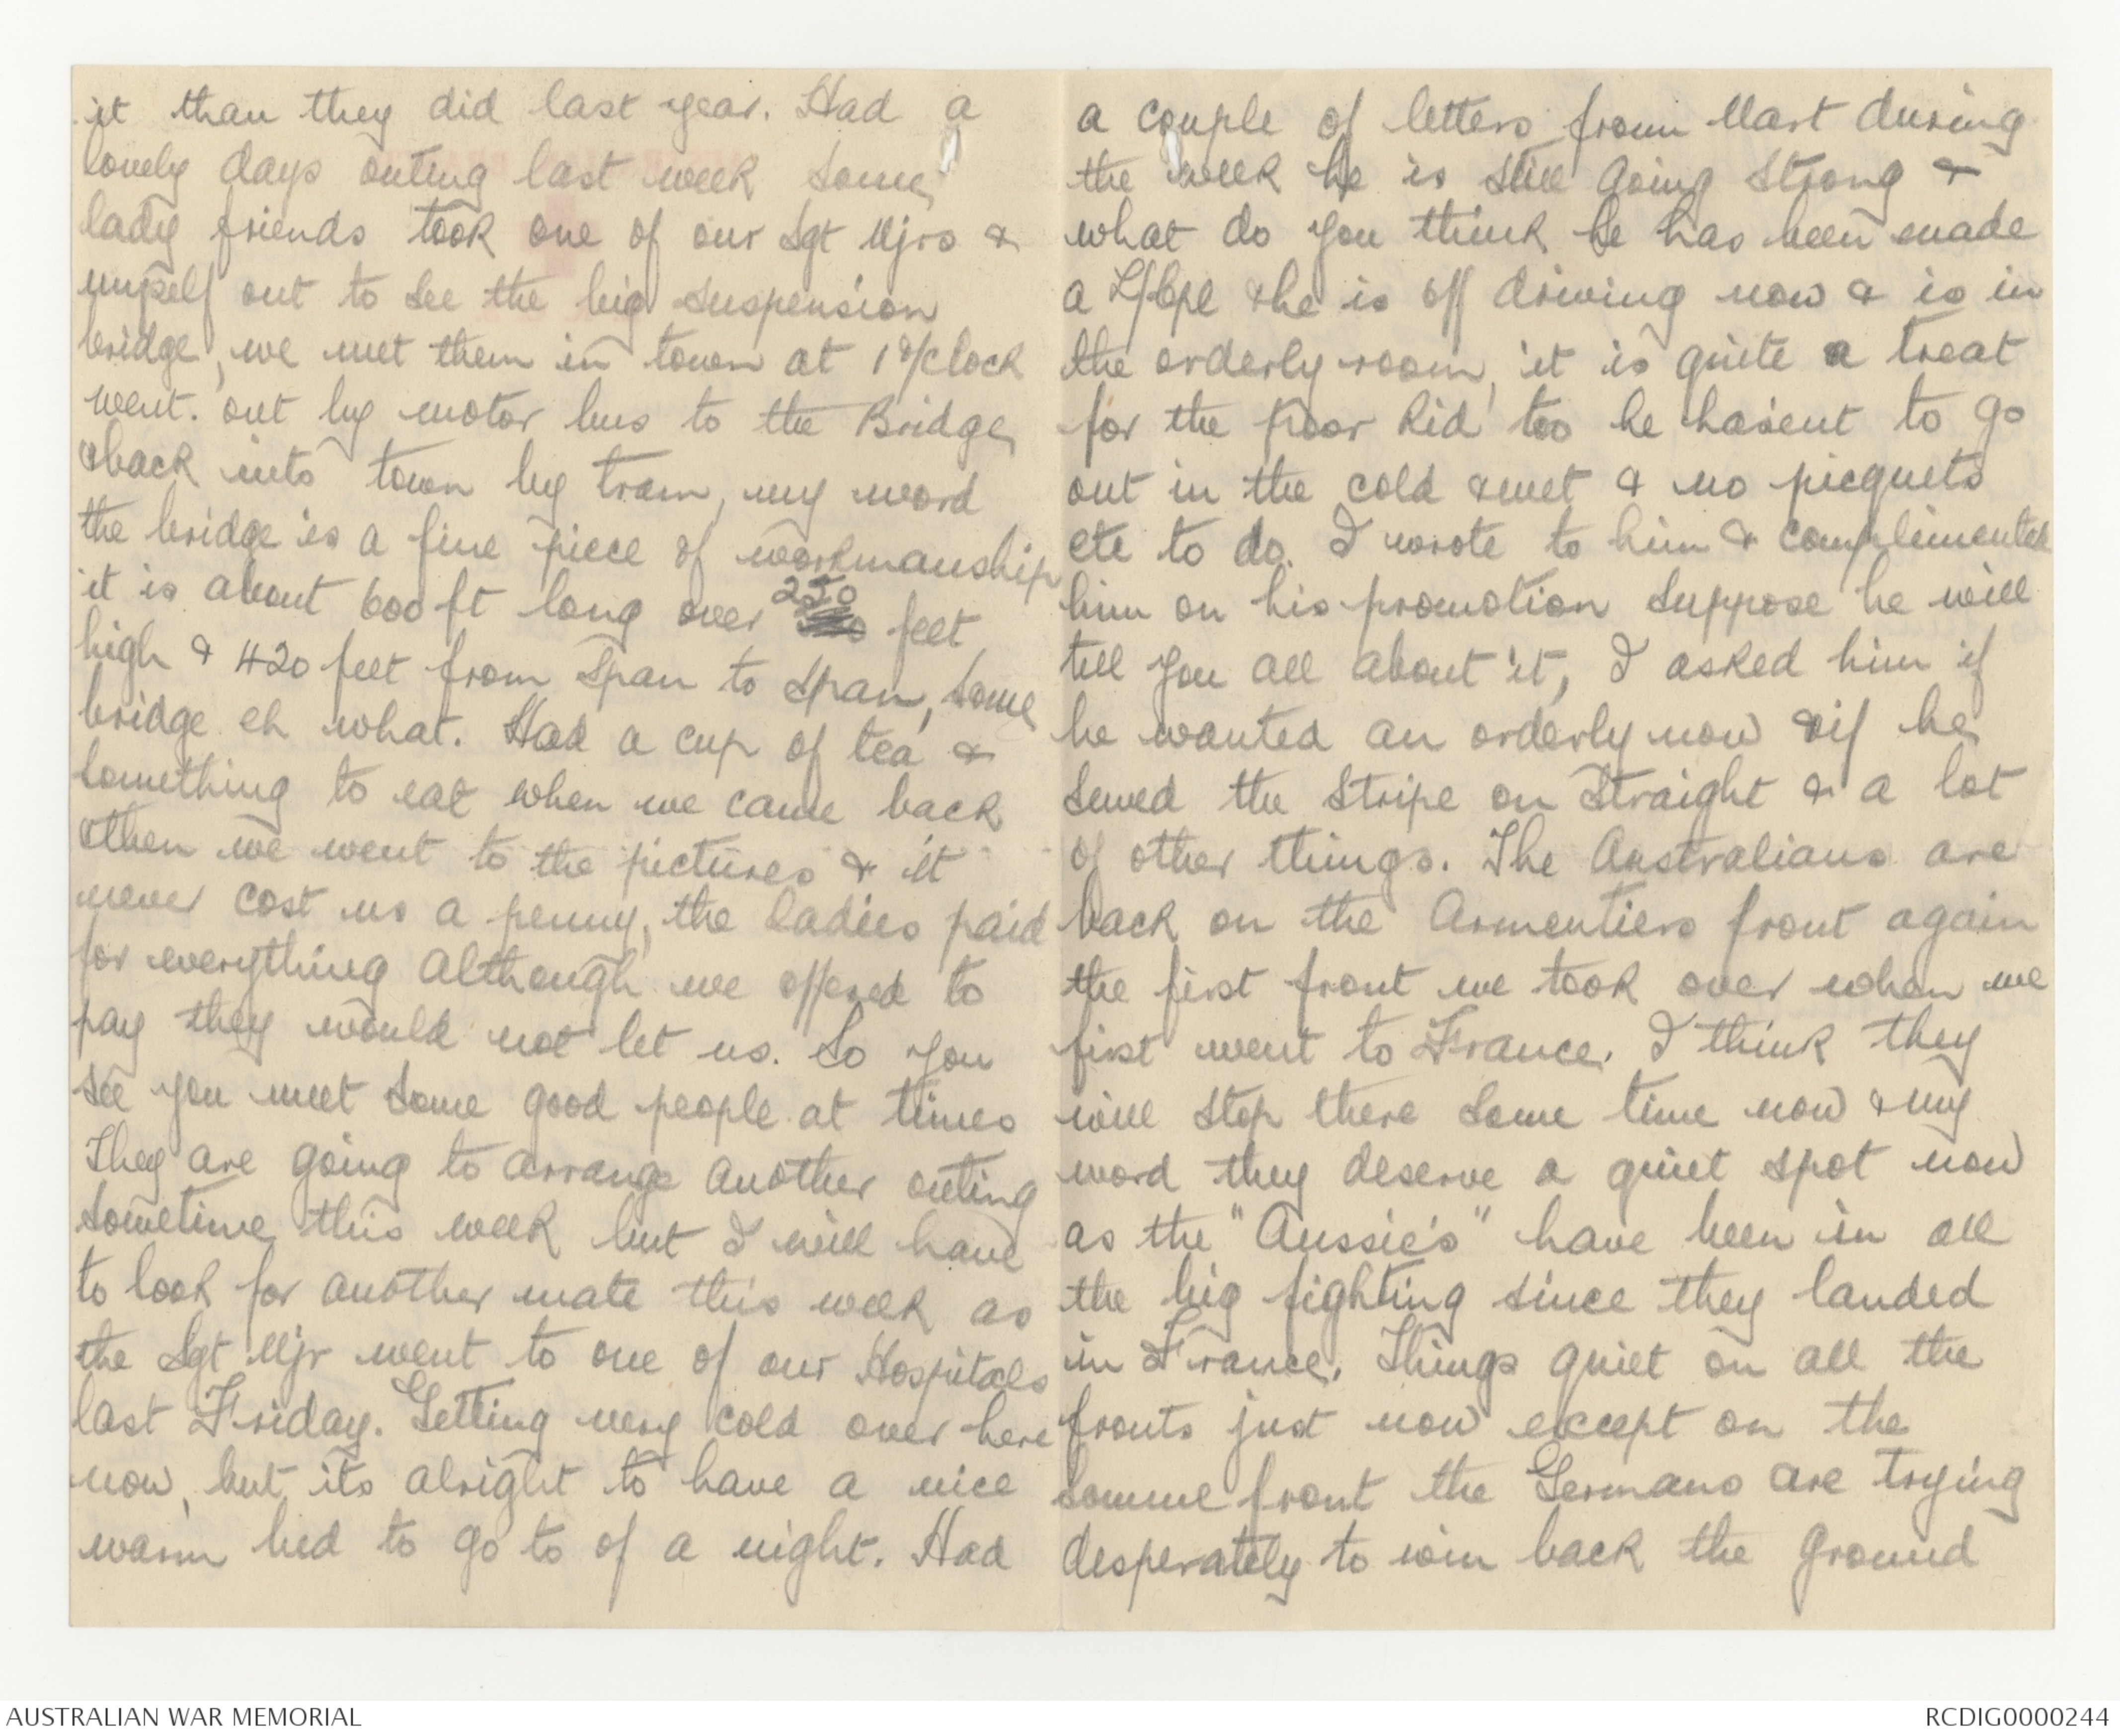 it than they did last year. Had a
lovely days outing last week some
lady friends took one of our Sgt Mjrs &
myself out to see the big suspension
bridge, we met them in town at 1 o/clock
went. out by motor bus to the Bridge
& back into town by tram, my word
the bridge is a fine piece of workmanship
it is about 600 ft long over 250 feet
high & 420 feet from span to span, some
bridge eh what. Had a cup of tea &
something to eat when we came back
& then we went to the pictures & it
never cost us a penny, the ladies paid
for everything although we offered to
pay they would not let us. So you
see you meet some good people at times
They are going to arrange another outing
sometime this week but I will have
to look for another mate this week as
the Sgt Mjr went to one of our Hospitals
last Friday. Getting very cold over here
now, but its alright to have a nice
warm bed to go to of a night. Had
a couple of letters from Mart during
the week he is still going strong &
what do you think he has been made
a L/Cpl & he is off driving now & is in
the orderly room, it is quite a treat
for the poor kid too he hasent to go
out in the cold & wet & no picquets
etc to do. I wrote to him & complimented
him on his promotion suppose he will
tell you all about it, I asked him if
he wanted an orderly now & if he
sewed the stripe on straight & a lot
of other things. The Australians are
back on the Armentiers front again
the first front we took over when we
first went to France. I think they
will stop there some time now & my
word they deserve a quiet spot now
as the "Aussie's" have been in all
the big fighting since they landed
in France. Things quiet on all the
fronts just now except on the
Somme front the Germans are trying
desperately to win back the ground
AUSTRALIAN WAR MEMORIAL
RCDIG0000244